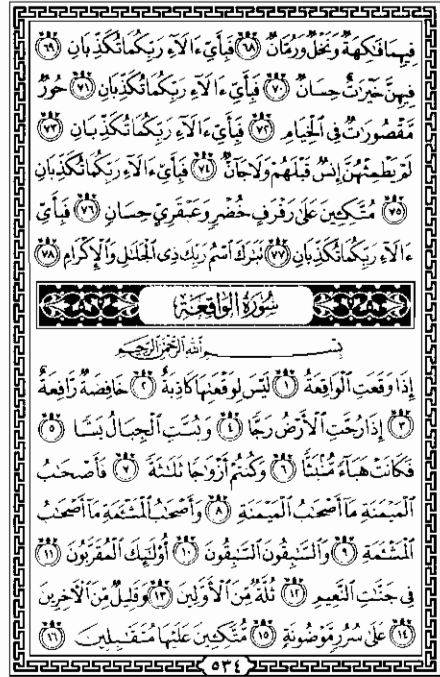 فِيهِمَا فَٰكِهَةٌ وَنَخْلٌ وَرُمَّانٌ ﴿٦٨﴾ فَبِأَىِّ ءَالَآءِ رَبِّكُمَا تُكَذِّبَانِ ﴿٦٩﴾
فِيهِنَّ خَيْرَٰتٌ حِسَانٌ ﴿٧٠﴾ فَبِأَىِّ ءَالَآءِ رَبِّكُمَا تُكَذِّبَانِ ﴿٧١﴾ حُورٌ
مَّقْصُورَٰتٌ فِى ٱلْخِيَامِ ﴿٧٢﴾ فَبِأَىِّ ءَالَآءِ رَبِّكُمَا تُكَذِّبَانِ ﴿٧٣﴾
لَمْ يَطْمِثْهُنَّ إِنسٌ قَبْلَهُمْ وَلَا جَآنٌّ ﴿٧٤﴾ فَبِأَىِّ ءَالَآءِ رَبِّكُمَا تُكَذِّبَانِ
﴿٧٥﴾ مُتَّكِـِٔينَ عَلَىٰ رَفْرَفٍ خُضْرٍ وَعَبْقَرِىٍّ حِسَانٍ ﴿٧٦﴾ فَبِأَىِّ
ءَالَآءِ رَبِّكُمَا تُكَذِّبَانِ ﴿٧٧﴾ تَبَٰرَكَ ٱسْمُ رَبِّكَ ذِى ٱلْجَلَٰلِ وَٱلْإِكْرَامِ ﴿٧٨﴾
سُورَةُ الوَاقِعَةِ
بِسْمِ ٱللَّهِ ٱلرَّحْمَٰنِ ٱلرَّحِيمِ
إِذَا وَقَعَتِ ٱلْوَاقِعَةُ ﴿١﴾ لَيْسَ لِوَقْعَتِهَا كَاذِبَةٌ ﴿٢﴾ خَافِضَةٌ رَّافِعَةٌ
﴿٣﴾ إِذَا رُجَّتِ ٱلْأَرْضُ رَجًّا ﴿٤﴾ وَبُسَّتِ ٱلْجِبَالُ بَسًّا ﴿٥﴾
فَكَانَتْ هَبَآءً مُّنۢبَثًّا ﴿٦﴾ وَكُنتُمْ أَزْوَٰجًا ثَلَٰثَةً ﴿٧﴾ فَأَصْحَٰبُ
ٱلْمَيْمَنَةِ مَآ أَصْحَٰبُ ٱلْمَيْمَنَةِ ﴿٨﴾ وَأَصْحَٰبُ ٱلْمَشْـَٔمَةِ مَآ أَصْحَٰبُ
ٱلْمَشْـَٔمَةِ ﴿٩﴾ وَٱلسَّٰبِقُونَ ٱلسَّٰبِقُونَ ﴿١٠﴾ أُو۟لَٰٓئِكَ ٱلْمُقَرَّبُونَ ﴿١١﴾
فِى جَنَّٰتِ ٱلنَّعِيمِ ﴿١٢﴾ ثُلَّةٌ مِّنَ ٱلْأَوَّلِينَ ﴿١٣﴾ وَقَلِيلٌ مِّنَ ٱلْءَاخِرِينَ
﴿١٤﴾ عَلَىٰ سُرُرٍ مَّوْضُونَةٍ ﴿١٥﴾ مُّتَّكِـِٔينَ عَلَيْهَا مُتَقَٰبِلِينَ ﴿١٦﴾
٥٣٤